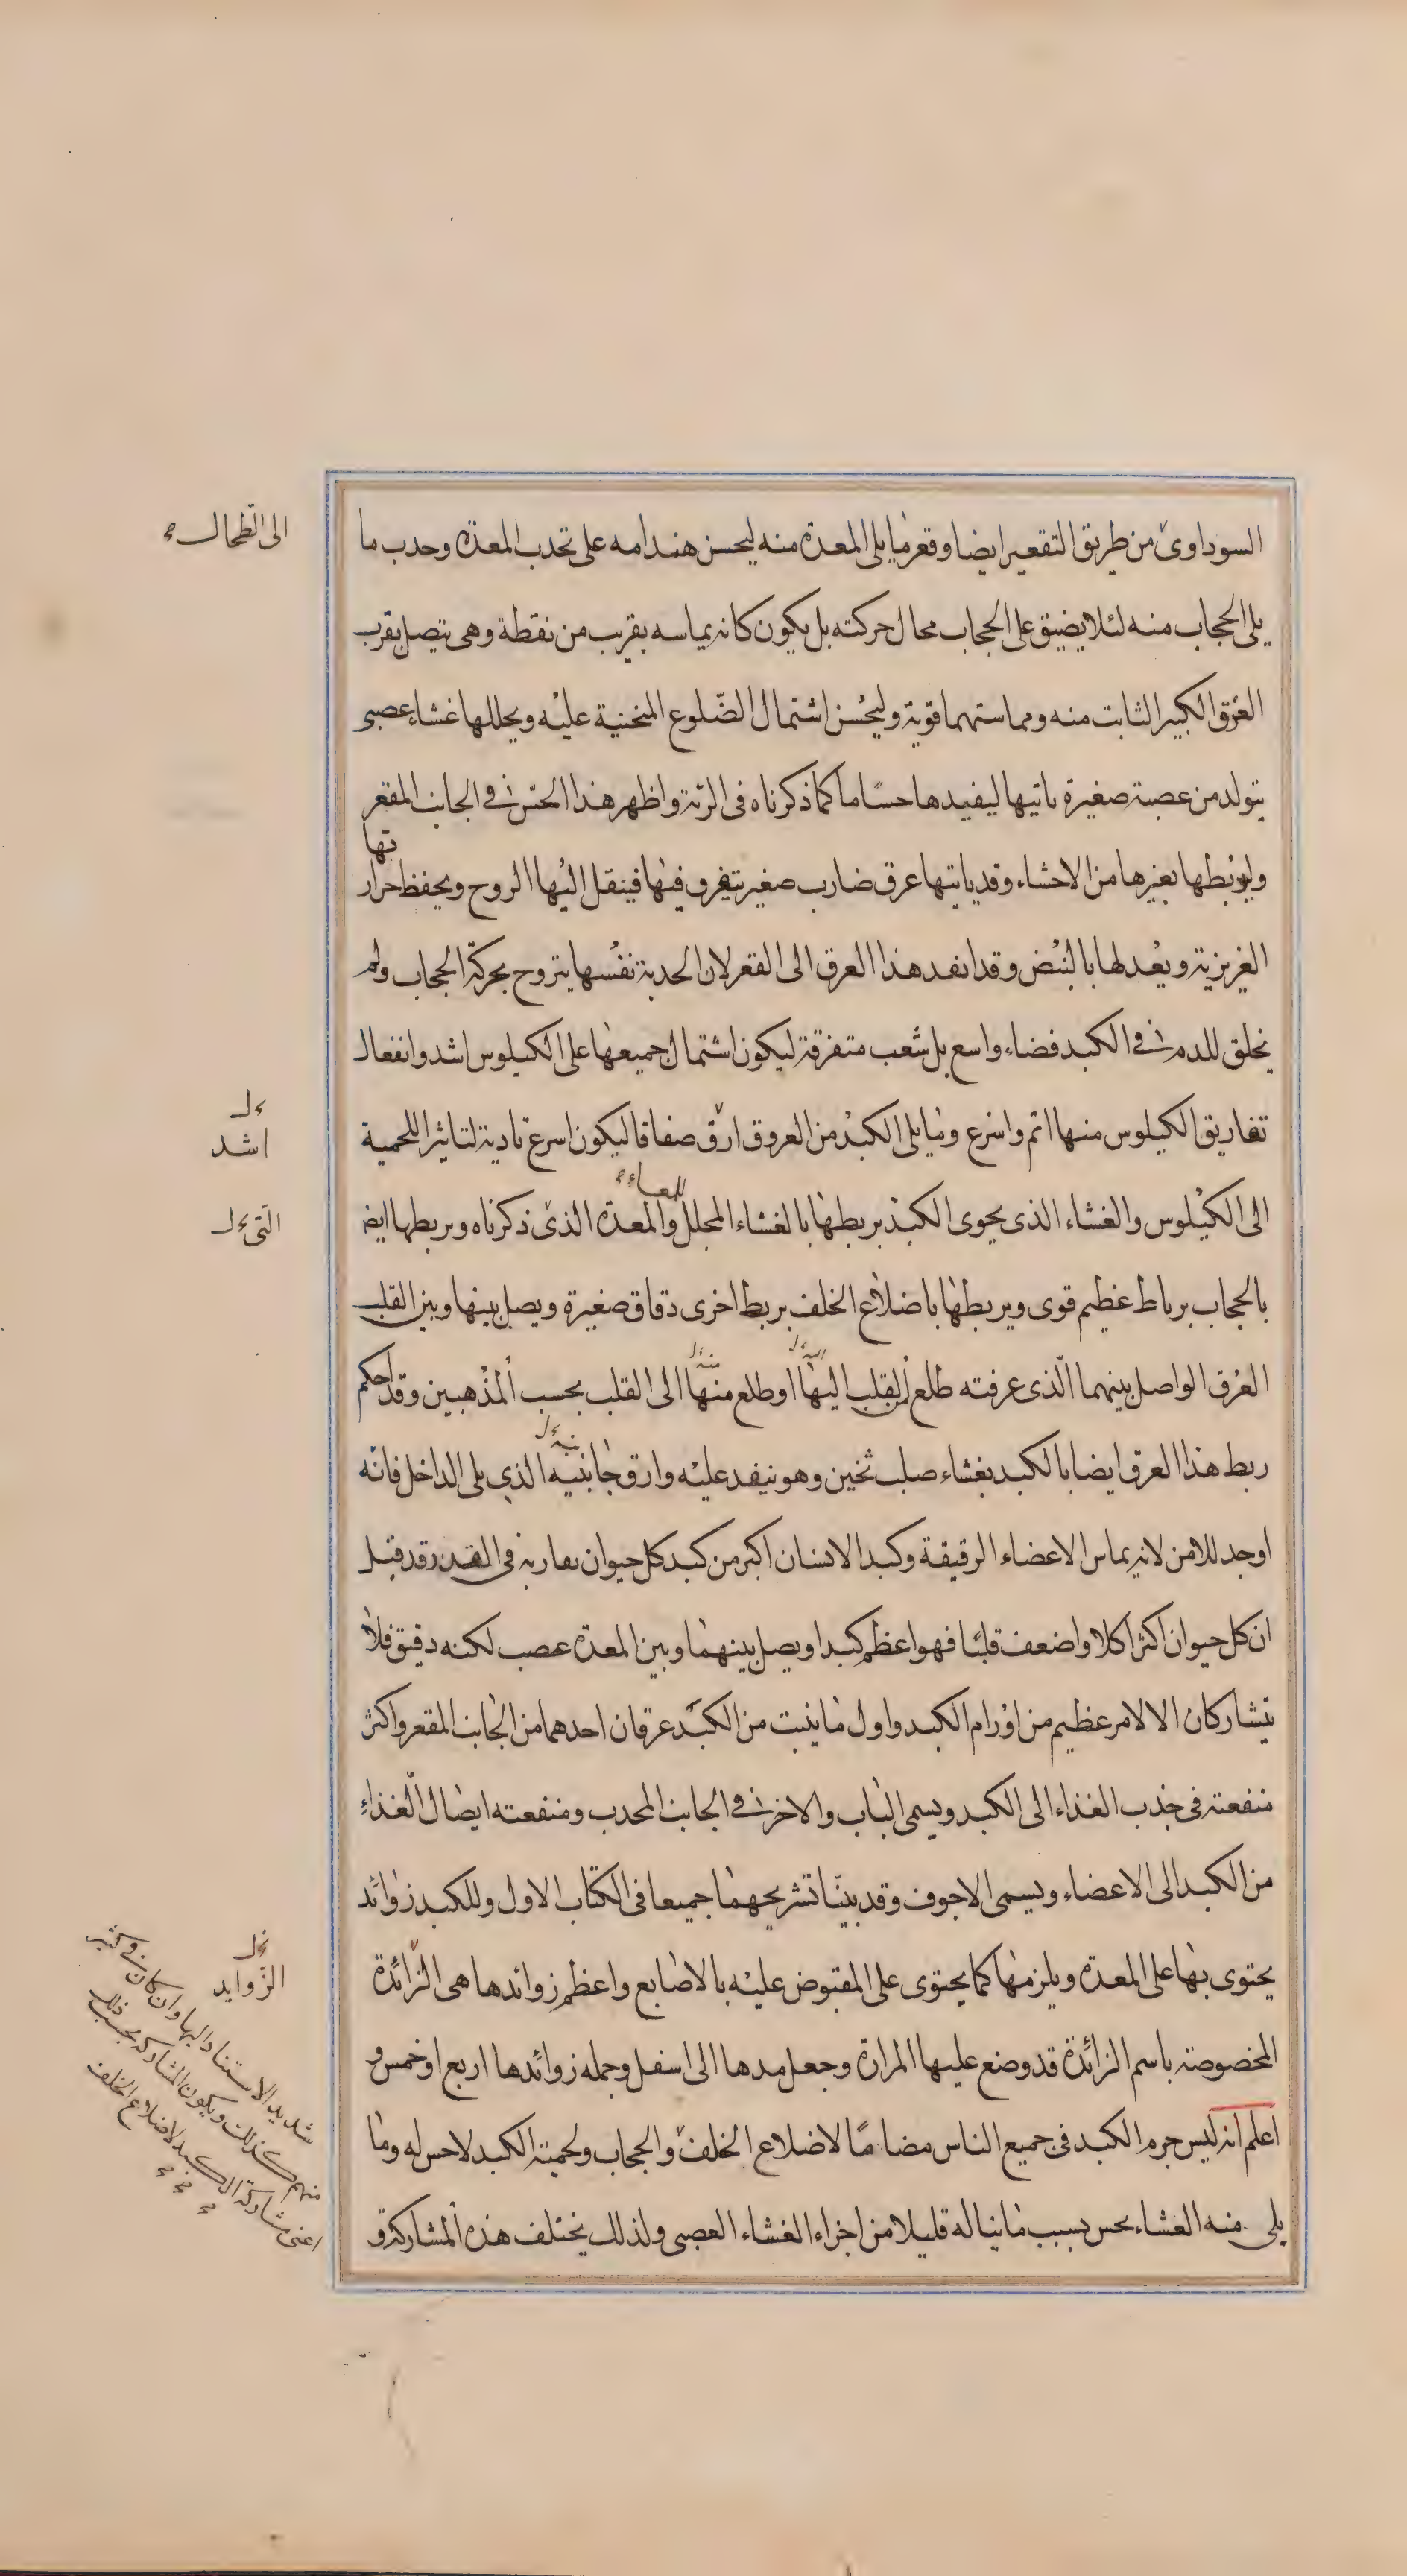 السوداوىّ من طريق التقعير ايضا وقعر ما يلى المعدة منه ليحسن هندامه على تحدب المعدة وحدب ما
الى الطحال
يلى الحجاب منه لئلا يضيق على الحجاب محال حركته بل يكون كانه يماسه بقرب من نقطة وهى يتصل بقرب
العرق الكبير الثابت منه ومماستهما قوية وليحسن اشتمال الضّلوع المنحنية عليه ويجللها غشاء عصبى
يتولد من عصبة صغيرة ياتيها ليفيدها حسًا ما كما ذكرناه فى الرئة واظهر هذا الحسّ فى الجانب المقعر
وليربطها بغيرها من الاحشاء وقد ياتيها عرق ضارب صغير يتفرق فيها فينقل اليها الروح ويحفظ حرار
تها
الغريزية ويعدلها بالنبض وقد انفد هذا العرق الى القعر لان الحدبة نفسها يتروح بحركة الحجاب ولم
يخلق للدم فى الكبد فضاء واسع بل شعب متفرقة ليكون اشتمال جميعها على الكيلوس اشد وانفعال
تفاريق الكيلوس منها اتم واسرع وما يلى الكبد من العروق ارقّ صفاقا ليكون اسرع تادية لتاثير اللحمية
اشد
الى الكيلوس والغشاء الذى يحوى الكبد يربطها بالغشاء المجلل والمعدة الذىّ ذكرناه ويربطها ايض
للمعاء
التى
بالحجاب برباط عظيم قوى ويربطها باضلاع الخلف بربط اخرى دقاق صغيرة ويصل بينها وبين القلب
العرق الواصل بينهما الّذى عرفته طلع من القلب اليها او طلع منها الى القلب بحسب المذهبين وقد احكم
ربط هذا العرق ايضا بالكبد بغشاء صلب ثخين وهو ينفد عليه وارق جانبيه الذى يلى الداخل فانه
اوجد للامن لانه يماس الاعضاء الرقيقة وكبد الانسان اكبر من كبد كل حيوان يقاربه فى القدر وقد قيل
ان كل حيوان اكثر اكلا واضعف قلبًا فهو اعظم كبدا ويصل بينهما وبين المعدة عصب لكنه دقيق فلا
يتشاركان الا لامر عظيم من اورام الكبد واول ما ينبت من الكبد عرقان احدهما من الجانب المقعر واكثر
منفعته فى جذب الغذاء الى الكبد ويسمى الباب والاخر فى الجانب المحدب ومنفعته ايصال الغذاء
من الكبد الى الاعضاء ويسمى الاجوف وقد بينّا تشريحهما جميعا فى الكتاب الاول وللكبد زوائد
يحتوى بها على المعدة ويلزمها كما يحتوى على المقبوض عليه بالاصابع واعظم زوائدها هى الزائدة
الزّوايد
المخصوصة باسم الزائدة قد وضع عليها المرارة وجعل مدها الى اسفل وجمله زوائدها اربع او خمس و
اعلم انه ليس جرم الكبد فى جميع الناس مضامًّا لاضلاع الخلف والحجاب ولحمية الكبد لا حس له وما
يلى منه الغشاء يحس بسبب ما يناله قليلا من اجزاء الغشاء العصبى ولذلك يختلف هذه المشاركة و
شديد الاستناد اليها وان كان فى كثير
منهم كذلك ويكون المشاركة بحسب ذلك
اعنى مشاركة الكبد لاضلاع الخلف